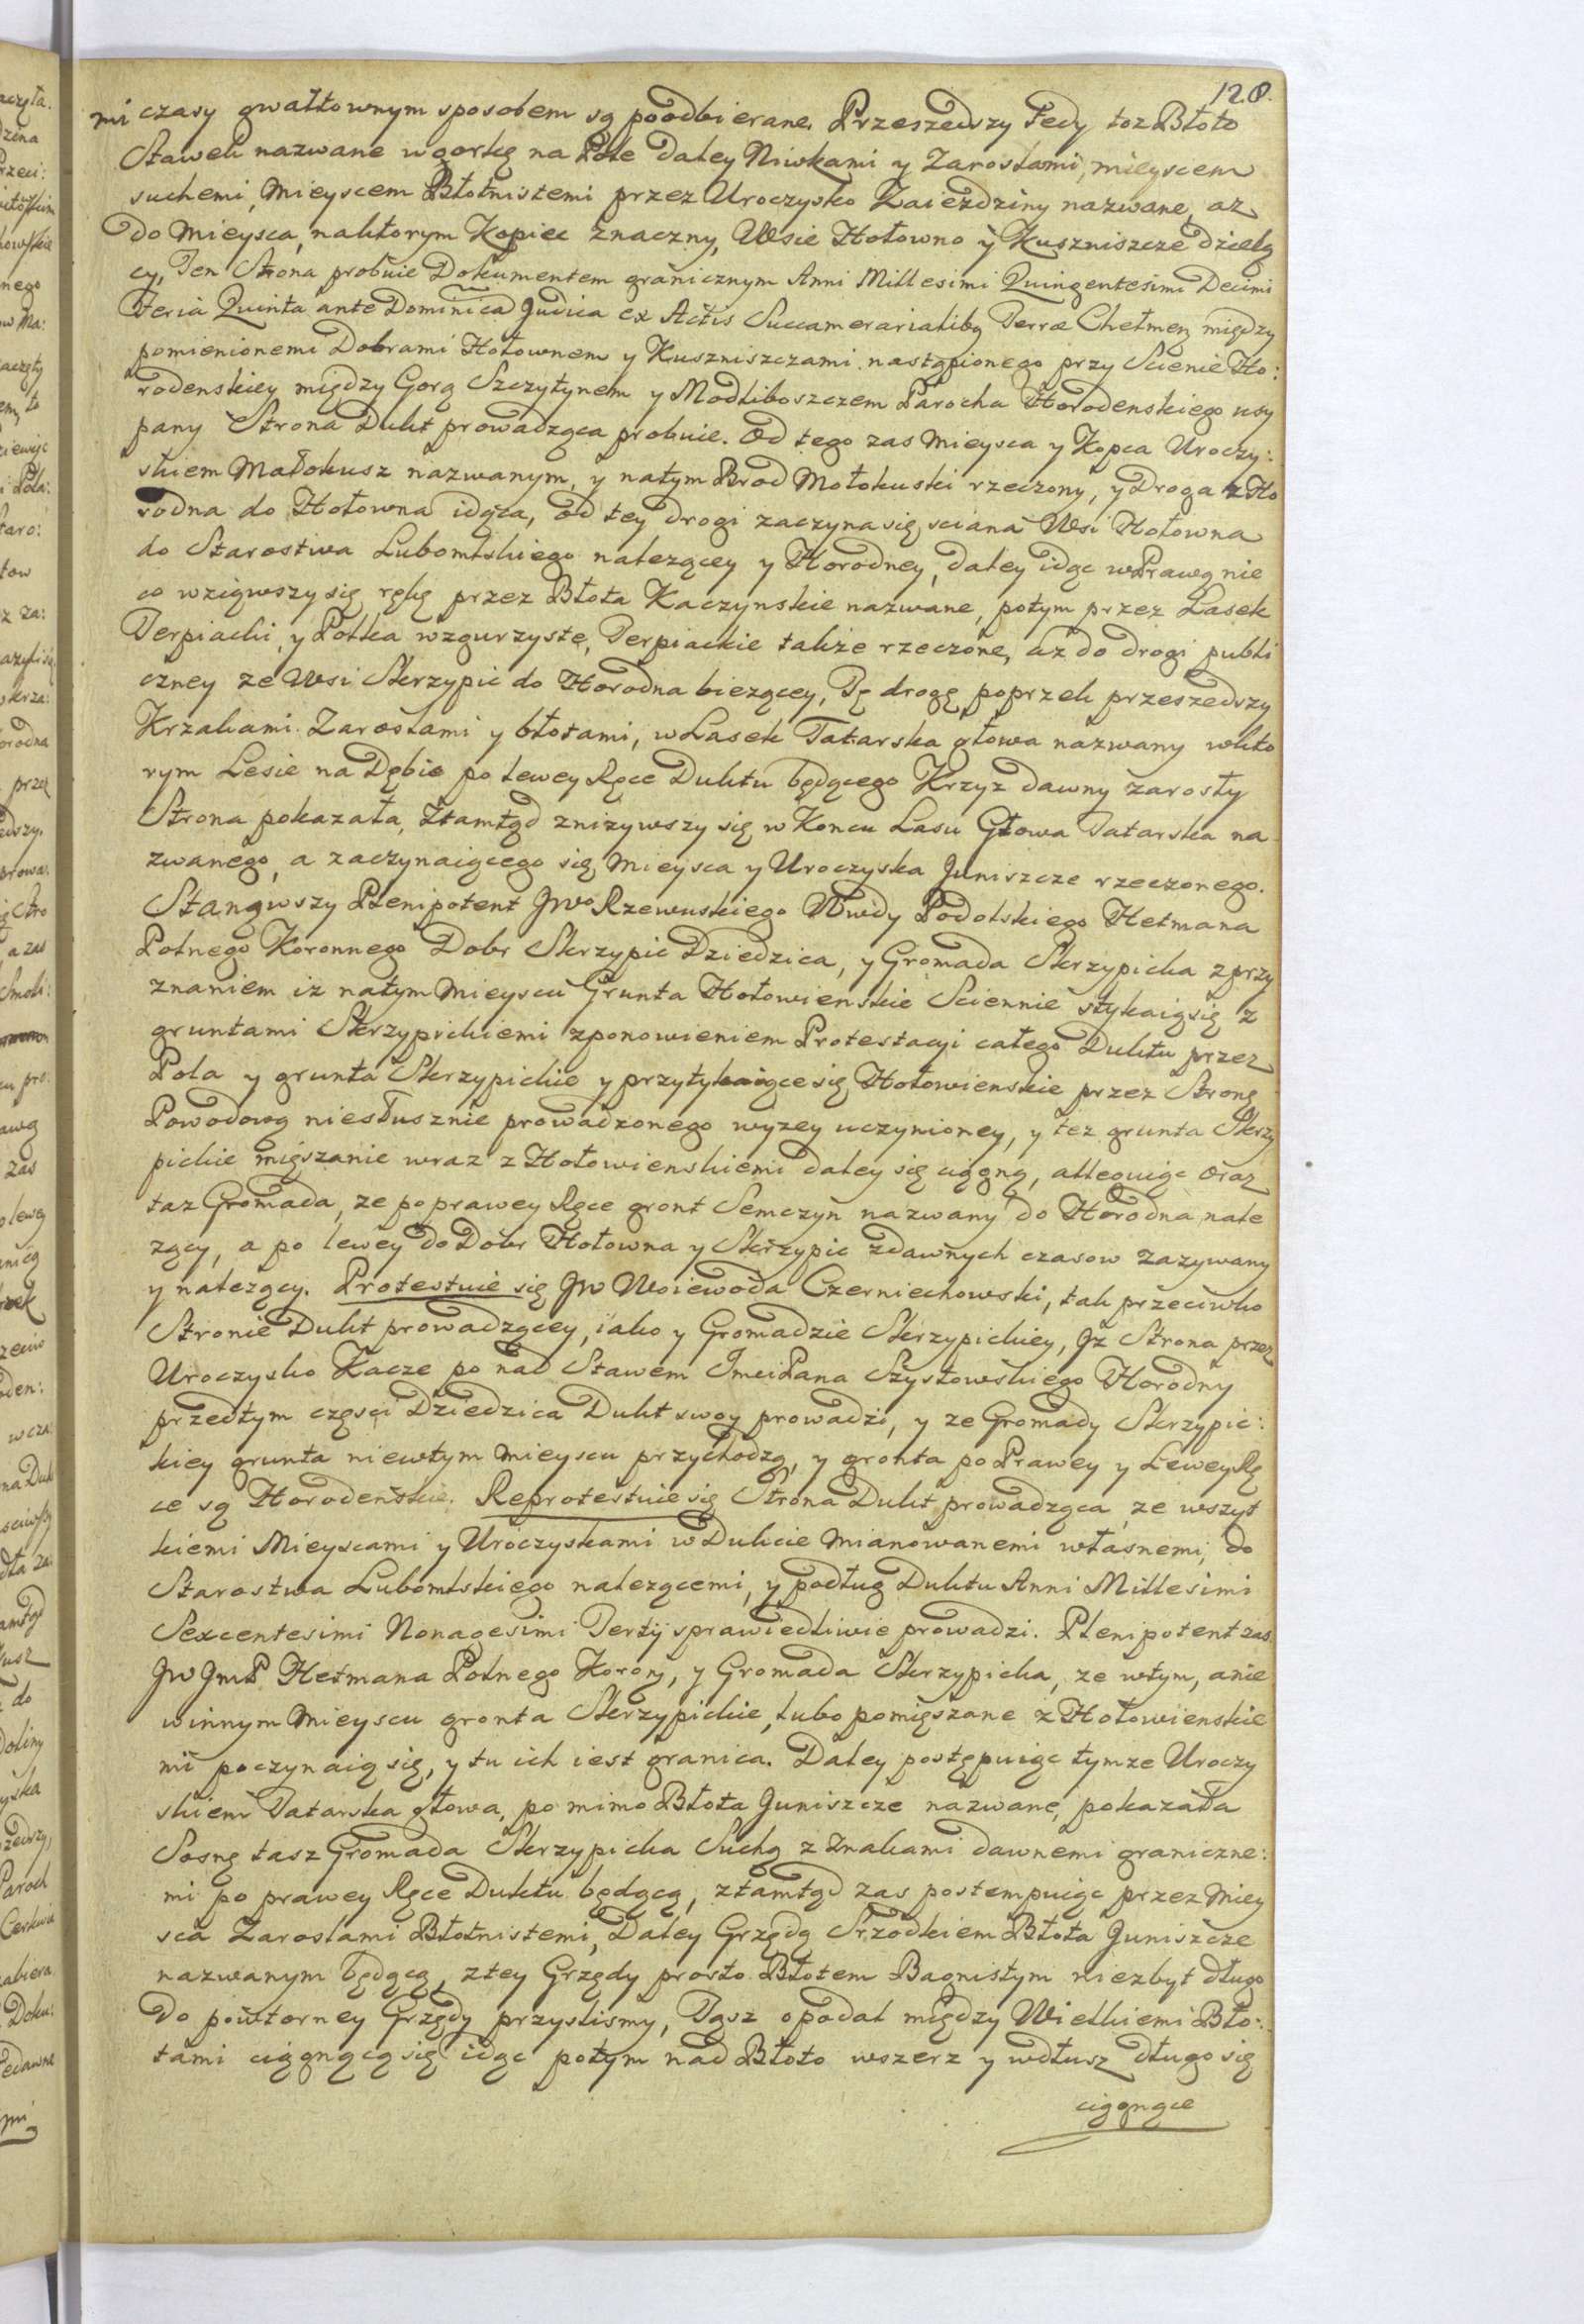 120.
mi czasy gwałtownym sposobem są poodbierane. Przeszedszy Tedy toz Błoto
Stawek nazwane w gorkę na Pole daley Niwkami y Zarostami, mieyscem
suchemi, mieyscem Błotnistemi przez Uroczysko Zaiezdziny nazwane, az
do Mieysca, naktorym Kopiec znaczny, Wsie Hołowno y Kuszniszcze dzielą
cy, Ten Strona probuie Dokumentem granicznym Anni Millesimi Quingentesimi Decimi
Feria Quinta ante Dominica Judica ex Actis Succamerarialibq Terræ Chełmeń między
pomienionemi Dobrami Hołownem y Kuszniszczami nastąpionego przy Scienie Ho:
rodenskiey między Gorą Szczytynem y Modliboszczem Parocha Horodenskiego usy
pany Strona Dukt prowadząca probuie. Od tego zas Mieysca y Kopca Uroczy:
skiem Małokusz nazwanym, y natym Brod Mołokuski rzeczony, y Droga z Ho
rodna do Hołowna idąca, od tey drogi zaczyna się sciana Wsi Hołowna
do Starostwa Lubomlskiego nalezącey y Horodney, daley idąc w Prawą nie
co wziąwszy się rękę przez Błota Kaczynskie nazwane, potym przez Lasek
Terpiacki, y Polka wzgurzyste, Terpiackie także rzeczone, az do drogi publi
czney ze Wsi Skrzypic do Horodna biezącey, Tę drogę poprzek przeszedszy
Krzakami Zarostami y błotami, w Lasek Tatarska głowa nazwany wkto
rym Lesie na Dębie po lewey Ręce Duktu będącego Krzyz dawny zarosły
Strona pokazała, Ztamtąd znizywszy się w Koncu Lasu Głowa Tatarska na
zwanego, a zaczynaiącego się Mieysca y Uroczyska Juniszcze rzeczonego.
Stanąwszy Plenipotent JWo Rzewuskiego Wwdy Podolskiego Hetmana
Polnego Koronnego Dobr Skrzypic Dziedzica, y Gromada Skrzypicka z przy
znaniem iz natym Mieyscu Grunta Hołowienskie Sciennie stykaią się z
gruntami Skrzypickiemi zponowieniem Protestacyi całego Duktu przez
Pola y grunta Skrzypickie y przytykaiące się Hołowienskie przez Stronę
Powodową niesłusznie prowadzonego wyzey uczynioney, y tez grunta Skrzy
pickie mięszanie wraz z Hołowienskiemi daley się ciągną, alleguiąc oraz
taz Gromada, ze po prawey Ręce gront Semczyn nazwany do Horodna nale
zący, a po lewey do Dobr Hołowna y Skrzypic zdawnych czasow zazywany
y nalezący. Protestuie się JW Woiewoda Czerniechowski, tak przeciwko
Stronie Dukt prowadzącey, iako y Gromadzie Skrzypickiey, Jz Strona przez
Uroczysko Kacze po nad Stawem Jmci Pana Szystowskiego Horodny
przedtym części Dziedzica Dukt swoy prowadzi, y ze Gromady Skrzypic:
kiey grunta niewtym mieyscu przychodzą, y gronta po Prawey y Lewey Rę
ce są Horodeńskie. Reprotestuie się Strona Dukt prowadząca, ze wszyt
kiemi Mieyscami y Uroczyskami w Dukcie mianowanemi własnemi, do
Starostwa Lubomlskiego nalezącemi, y podług Duktu Anni Millesimi
Sexcentesimi Nonagesimi Tertij sprawiedliwie prowadzi. Plenipotent zas
JW JmP. Hetmana Polnego Koroñ, y Gromada Skrzypicka, ze wtym, anie
winnym Mieyscu gronta Skrzypickie, lubo pomięszane z Hołowienskie
mi poczynaią się, y tu ich iest granica. Daley postępuiąc tymze Uroczy
skiem Tatarska głowa, po mimo Błota Juniszcze nazwane, pokazała
Sosnę tasz Gromada Skrzypicka Suchą z Znakami dawnemi graniczne:
mi po prawey Ręce Duktu będącą, ztamtąd zas postempuiąc przez Miey
sca Zarostami Błotnistemi, Daley Grzędą Srzodkiem Błota Juniszcze
nazwanym będącą, ztey Grzędy prosto Błotem Bagnistym niezbyt długo
Do powtorney Grzędy przyslismy, Tąsz opodal między Wielkiemi Bło:
tami ciągnącą się idąc potym nad Błoto wszerz y wdłusz długo się
ciągnące